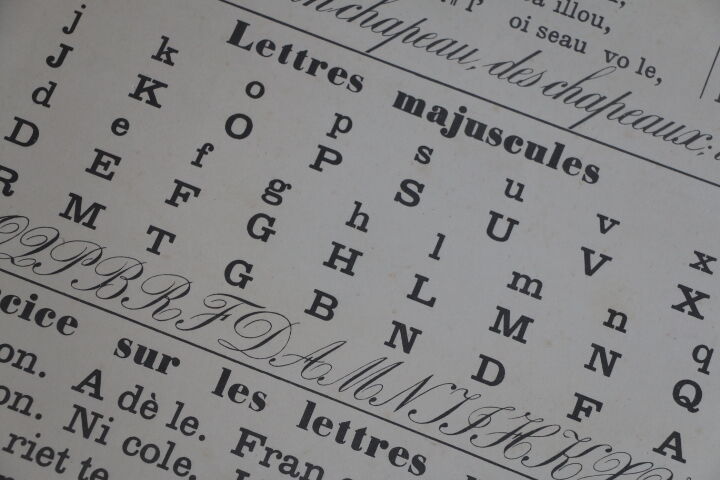 illou,
oi seau vo le,
chapeau, des chapeaux;
Lettres majuscules
j k o p s u v x
J K O P S U V X
d e f g h l m n q
D E F G H L M N Q
R M T G B N D F A
Q P B R F D A M N I J H K
cice sur les lettres
on. A dè le. Fran
on. Ni cole.
riet te